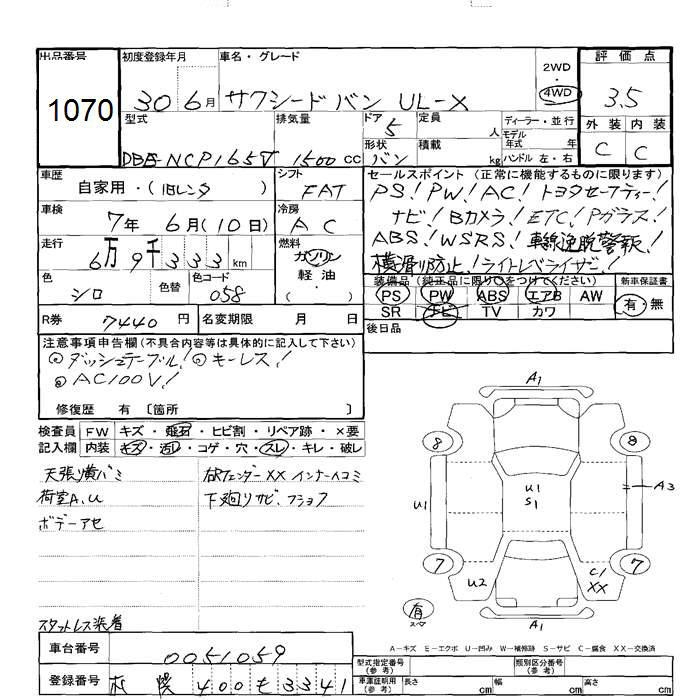 出品番号 初度登録年月 車名・グレード 評価点
1070 30 6月 サクシードバン UL-X 2WD・4WD 3.5
型式 排気量 ドア 定員 人 ディーラー・並行 外装 内装
5 モデル年式 年
DBE-NCP165V 1500cc 形状 バン 積載 kg ハンドル 左・右 C C
車歴 シフト セールスポイント(正常に機能するものに限ります)
自家用・(旧レンタ) FAT PS! PW! AC! トヨタセーフティー!
車検 冷房 ナビ! Bカメラ! ETC! Pガラス!
7年 6月(10日) AC ABS! WSRS! 車線逸脱警報!
走行 燃料 横滑り防止! ライトレベライザー!
6万9千333km ガソリン
軽油
( )
色 色替 色コード 装備品(純正品に限り○をつけてください) 新車保証書
シロ 058 PS PW ABS エアB AW 有・無
R券 7440円 名変期限 月 日 SR ナビ TV カワ
後日品
注意事項申告欄(不具合内容等は具体的に記入して下さい)
◎ダッシュテーブル! ◎キーレス!
◎AC100V!
修復歴 有 〔箇所 〕
検査員 FW キズ・飛石・ヒビ割・リペア跡・×要
記入欄 内装 キズ・汚れ・コゲ・穴・スレ・キレ・破レ
天張り横バミ 右Rフェンダー XX インナーヘコミ
荷室A.U 下廻りサビ、フショク
ボデーアセ
スタットレス装着
A1
8 8
U1 U1 S1 A3
7 7
U2 C1 XX
有 スペア A1
A-キズ E-エクボ U-凹み W-補修跡 S-サビ C-腐食 XX-交換済
車台番号 0051059
型式指定番号(参考) 類別区分番号(参考)
登録番号 400 も 3341
車庫証明用(参考) 長さ cm 幅 cm 高さ cm